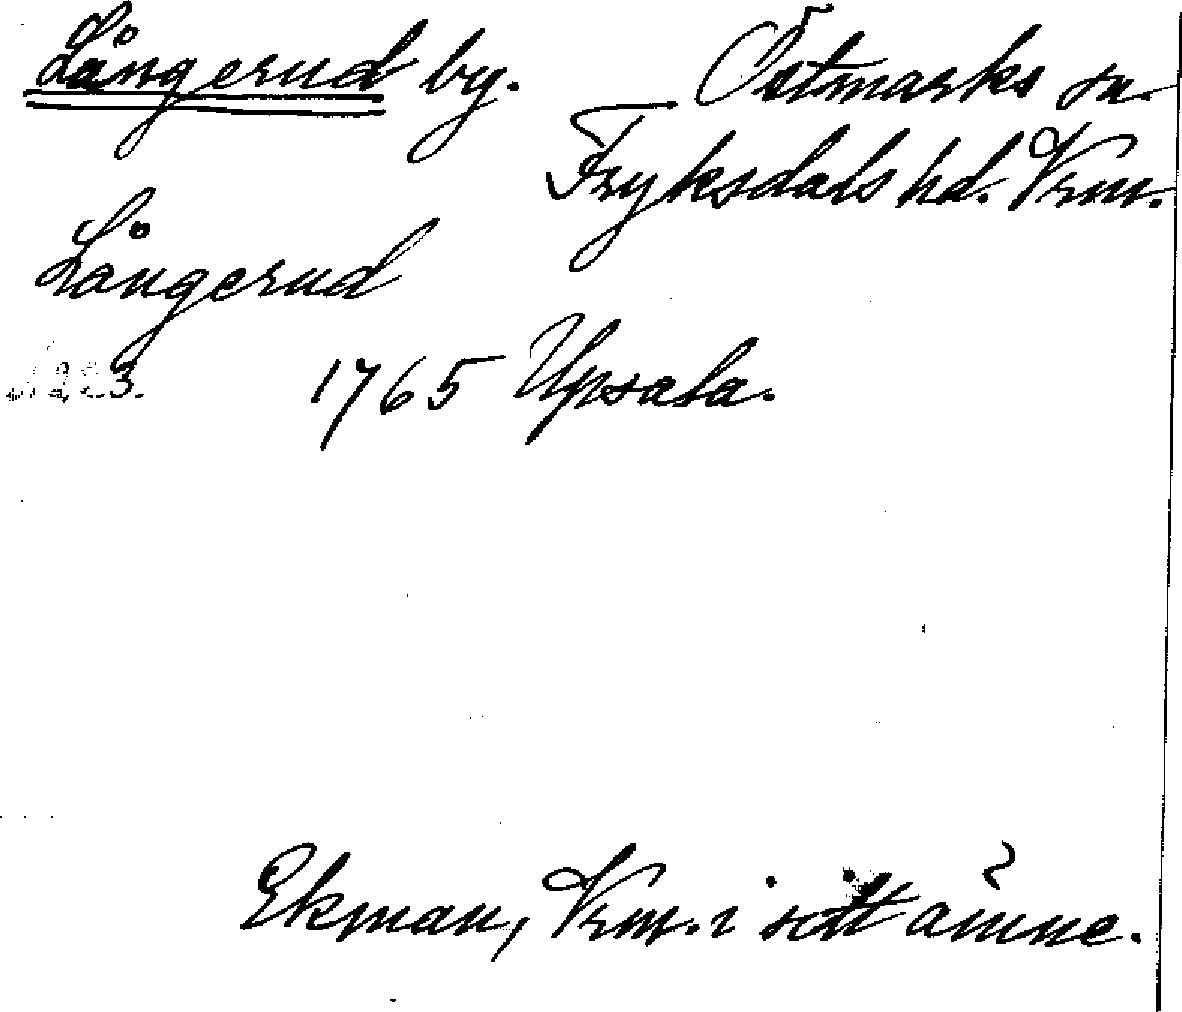 Långerud by. Östmarks sn.
Fryksdals hd. Vrm.
Långerud
1765 Upsala.
Ekman, Vrm. i sitt ämne.